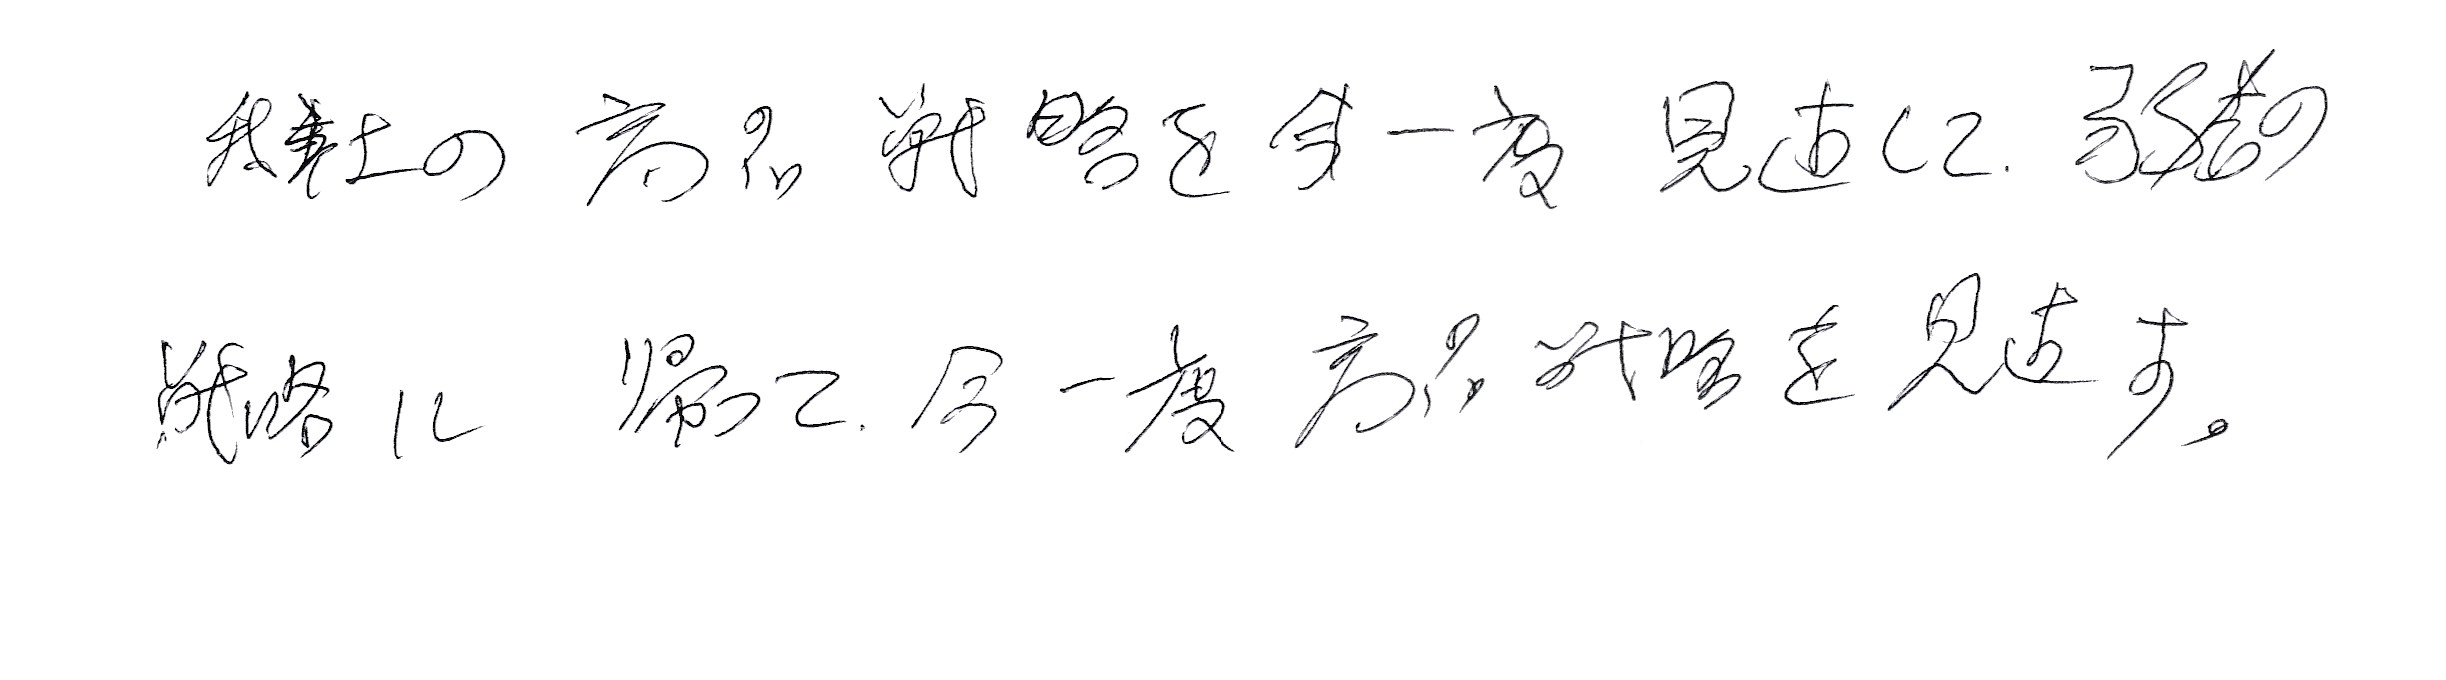 我社の商品戦略を今一度見直して、弱者の
戦略に帰って、今一度商品戦略を見直す。